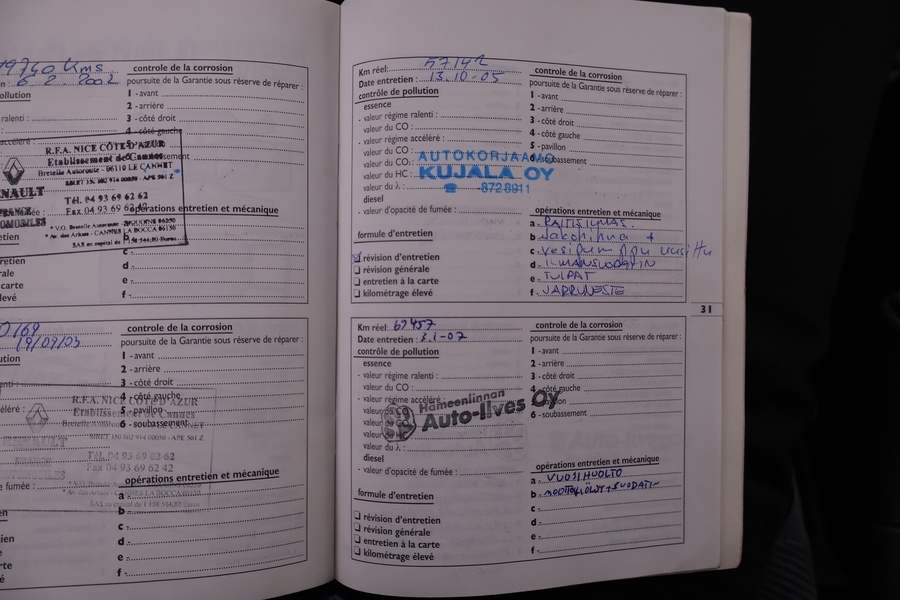 19740 Kms
6 2 2002
ollution
ralenti :
accéléré :
R.F.A. NICE CÔTE D'AZUR
Etablissement de Cannes
Bretelle Autoroute - 06110 LE CANNET
SIRET 350 902 914 00050 - APE 501 Z
RENAULT
FRANCE
AUTOMOBILES
Tél. 04 93 69 62 62
Fax 04 93 69 62 42
fumée :
controle de la corrosion
poursuite de la Garantie sous réserve de réparer :
1 - avant
2 - arrière
3 - côté droit
4 - côté gauche
opérations entretien et mécanique
c -
d -
e -
f -
19/09/03
R.F.A. NICE CÔTE D'AZUR
Etablissement de Cannes
RENAULT
Tél. 04 93 69 62 62
Fax 04 93 69 62 42
de fumée :
controle de la corrosion
poursuite de la Garantie sous réserve de réparer :
1 - avant
2 - arrière
3 - côté droit
4 - côté gauche
5 - pavillon
6 - soubassement
opérations entretien et mécanique
a -
b -
c -
d -
e -
f -
Km réel: 57142
Date entretien : 13.10-05
contrôle de pollution
essence
- valeur régime ralenti :
valeur du CO :
- valeur régime accéléré :
valeur du CO :
valeur du CO₂ :
valeur du HC :
valeur du λ :
diesel
- valeur d'opacité de fumée :
AUTOKORJAAMO
KUJALA OY
☎ 872 8911
formule d'entretien
révision d'entretien
révision générale
entretien à la carte
kilométrage élevé
controle de la corrosion
poursuite de la Garantie sous réserve de réparer :
1 - avant
2 - arrière
3 - côté droit
4 - côté gauche
5 - pavillon
6 - soubassement
opérations entretien et mécanique
a -
b - Jakohihna +
c - vesipumppu uusittu
d - ILMANSUODATIN
e - TULPAT
f - JARRUNESTE
31
Km réel: 67457
Date entretien : 3.1-07
contrôle de pollution
essence
- valeur régime ralenti :
valeur du CO :
- valeur régime accéléré :
valeur du CO
valeur du
valeur du HC
valeur du λ :
diesel
- valeur d'opacité de fumée :
Hämeenlinnan
Auto-Ilves Oy
formule d'entretien
révision d'entretien
révision générale
entretien à la carte
kilométrage élevé
controle de la corrosion
poursuite de la Garantie sous réserve de réparer :
1 - avant
2 - arrière
3 - côté droit
4 - côté gauche
5 - pavillon
6 - soubassement
opérations entretien et mécanique
a - VUOSIHUOLTO
b - MOOTTORIÖLJYT+SUODATIN
c -
d -
e -
f -